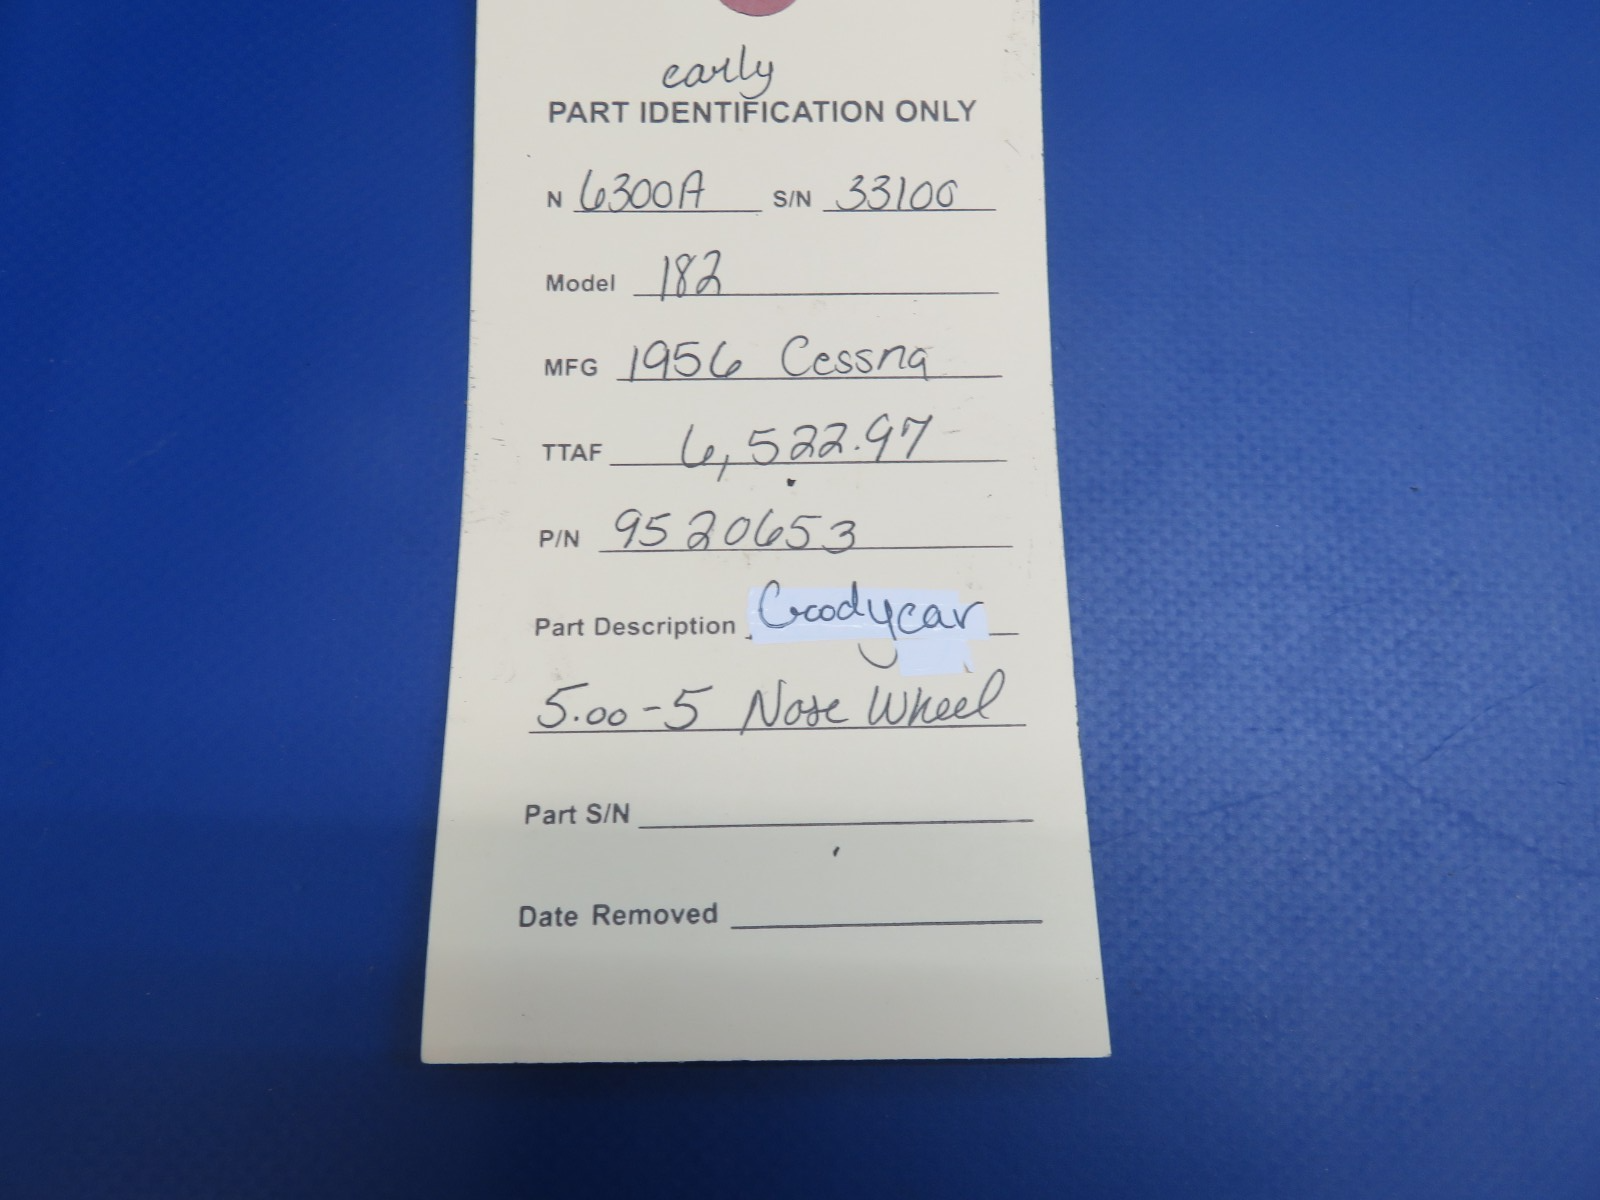 early
PART IDENTIFICATION ONLY
N 6300A S/N 33100
Model 182
MFG 1956 Cessna
TTAF 6,522.97
P/N 9520653
Part Description Goodyear
5.00-5 Nose Wheel
Part S/N
Date Removed